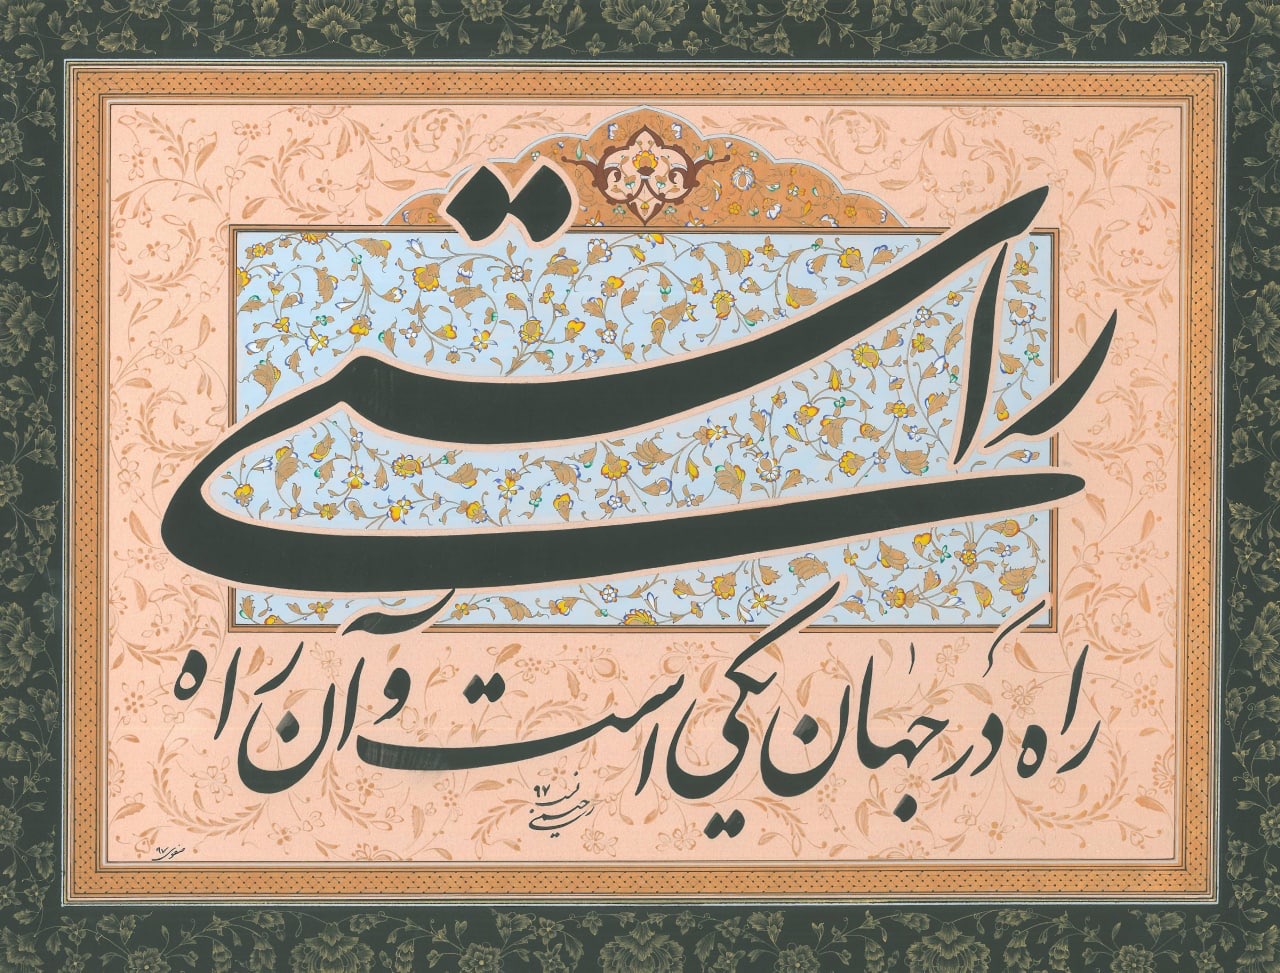 راستی
راه در جهان یکی است و آن راه
رحیمی
۹۷
صفوی ۹۷